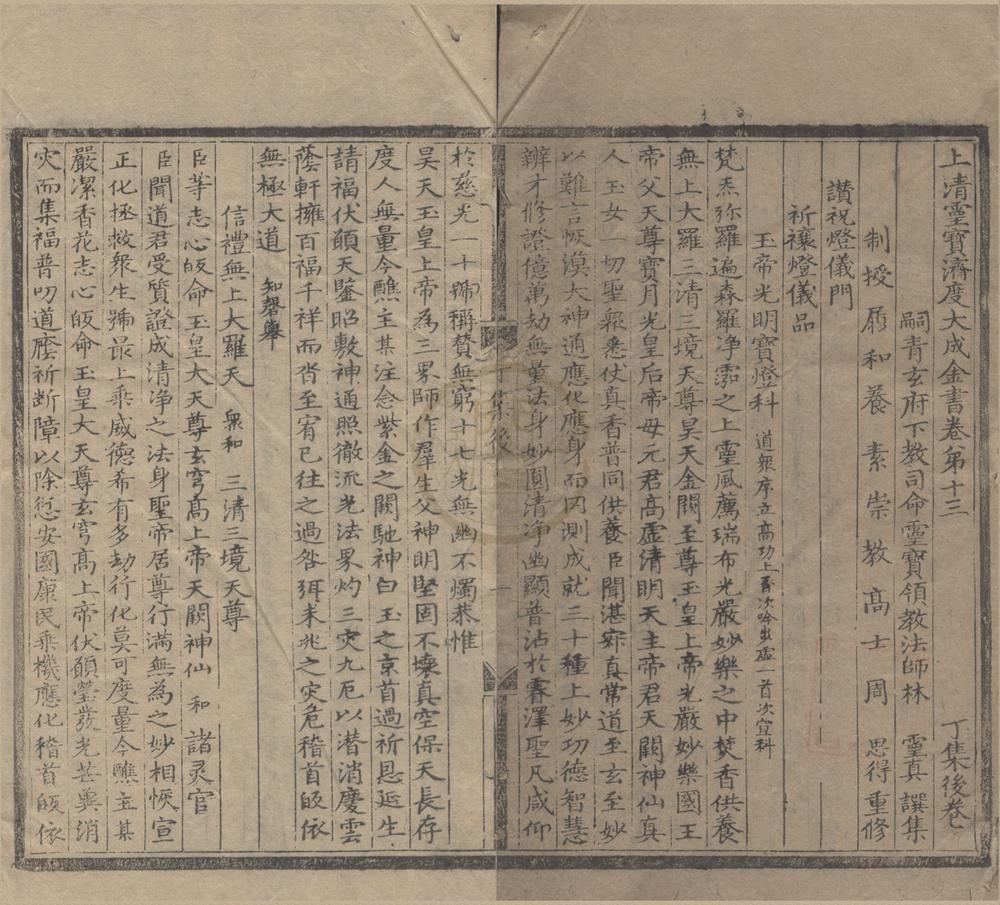 上清靈寶濟度大成金書卷第十三 丁集後卷
嗣青玄府下教司命靈寶領教法師林 靈真 譔集
制授履和養素崇教高士周 思得 重修
讃祝燈儀門
祈禳燈儀品
玉帝光明寶燈科 道衆序立高功上香次吟步虛一首次宣科
梵炁弥羅遍森羅净霐之上靈風薦瑞布光嚴妙樂之中焚香供養
無上大羅三清三境天尊昊天金闕至尊玉皇上帝光嚴妙樂國王
帝父天尊寶月光皇后帝母元君髙虛清明天主帝君天闕神仙真
人玉女一切聖衆悉仗真香普同供養臣聞湛寂真常道至玄至妙
以難言恢漠大神通應化應身而罔測成就三十種上妙功德智慧
辨才修證億萬劫無量法身妙圓清凈幽顯普沾於睿澤聖凡咸仰
於慈光一十號稱賛無窮十七光無幽不燭恭惟
昊天玉皇上帝為三界師作羣生父神明堅固不壞真空保天長存
度人無量今醮主某注念紫金之闕馳神白玉之京首過祈恩延生
請福伏願天鑒昭敷神通照徹流光法界灼三灾九厄以潜消慶雲
蔭軒擁百福千祥而沓至宥已往之過咎弭未兆之灾危稽首皈依
無極大道 知磬舉
信禮無上大羅天 衆和 三清三境天尊
臣等志心皈命玉皇大天尊玄穹髙上帝天闕神仙 和 諸灵官
臣聞道君受質證成清净之法身聖帝居尊行滿無為之妙相恢宣
正化拯救衆生號最上乘威德希有多劫行化莫可度量今醮主某
嚴潔香花志心皈命玉皇大天尊玄穹髙上帝伏願瑩發光芒冀消
灾而集福普叨道廕祈断障以除愆安國康民乘機應化稽首皈依